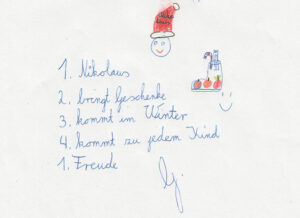 1. Nikolaus
2. bringt Geschenke
3. kommt im Winter
4. kommt zu jedem Kind
1. Freude